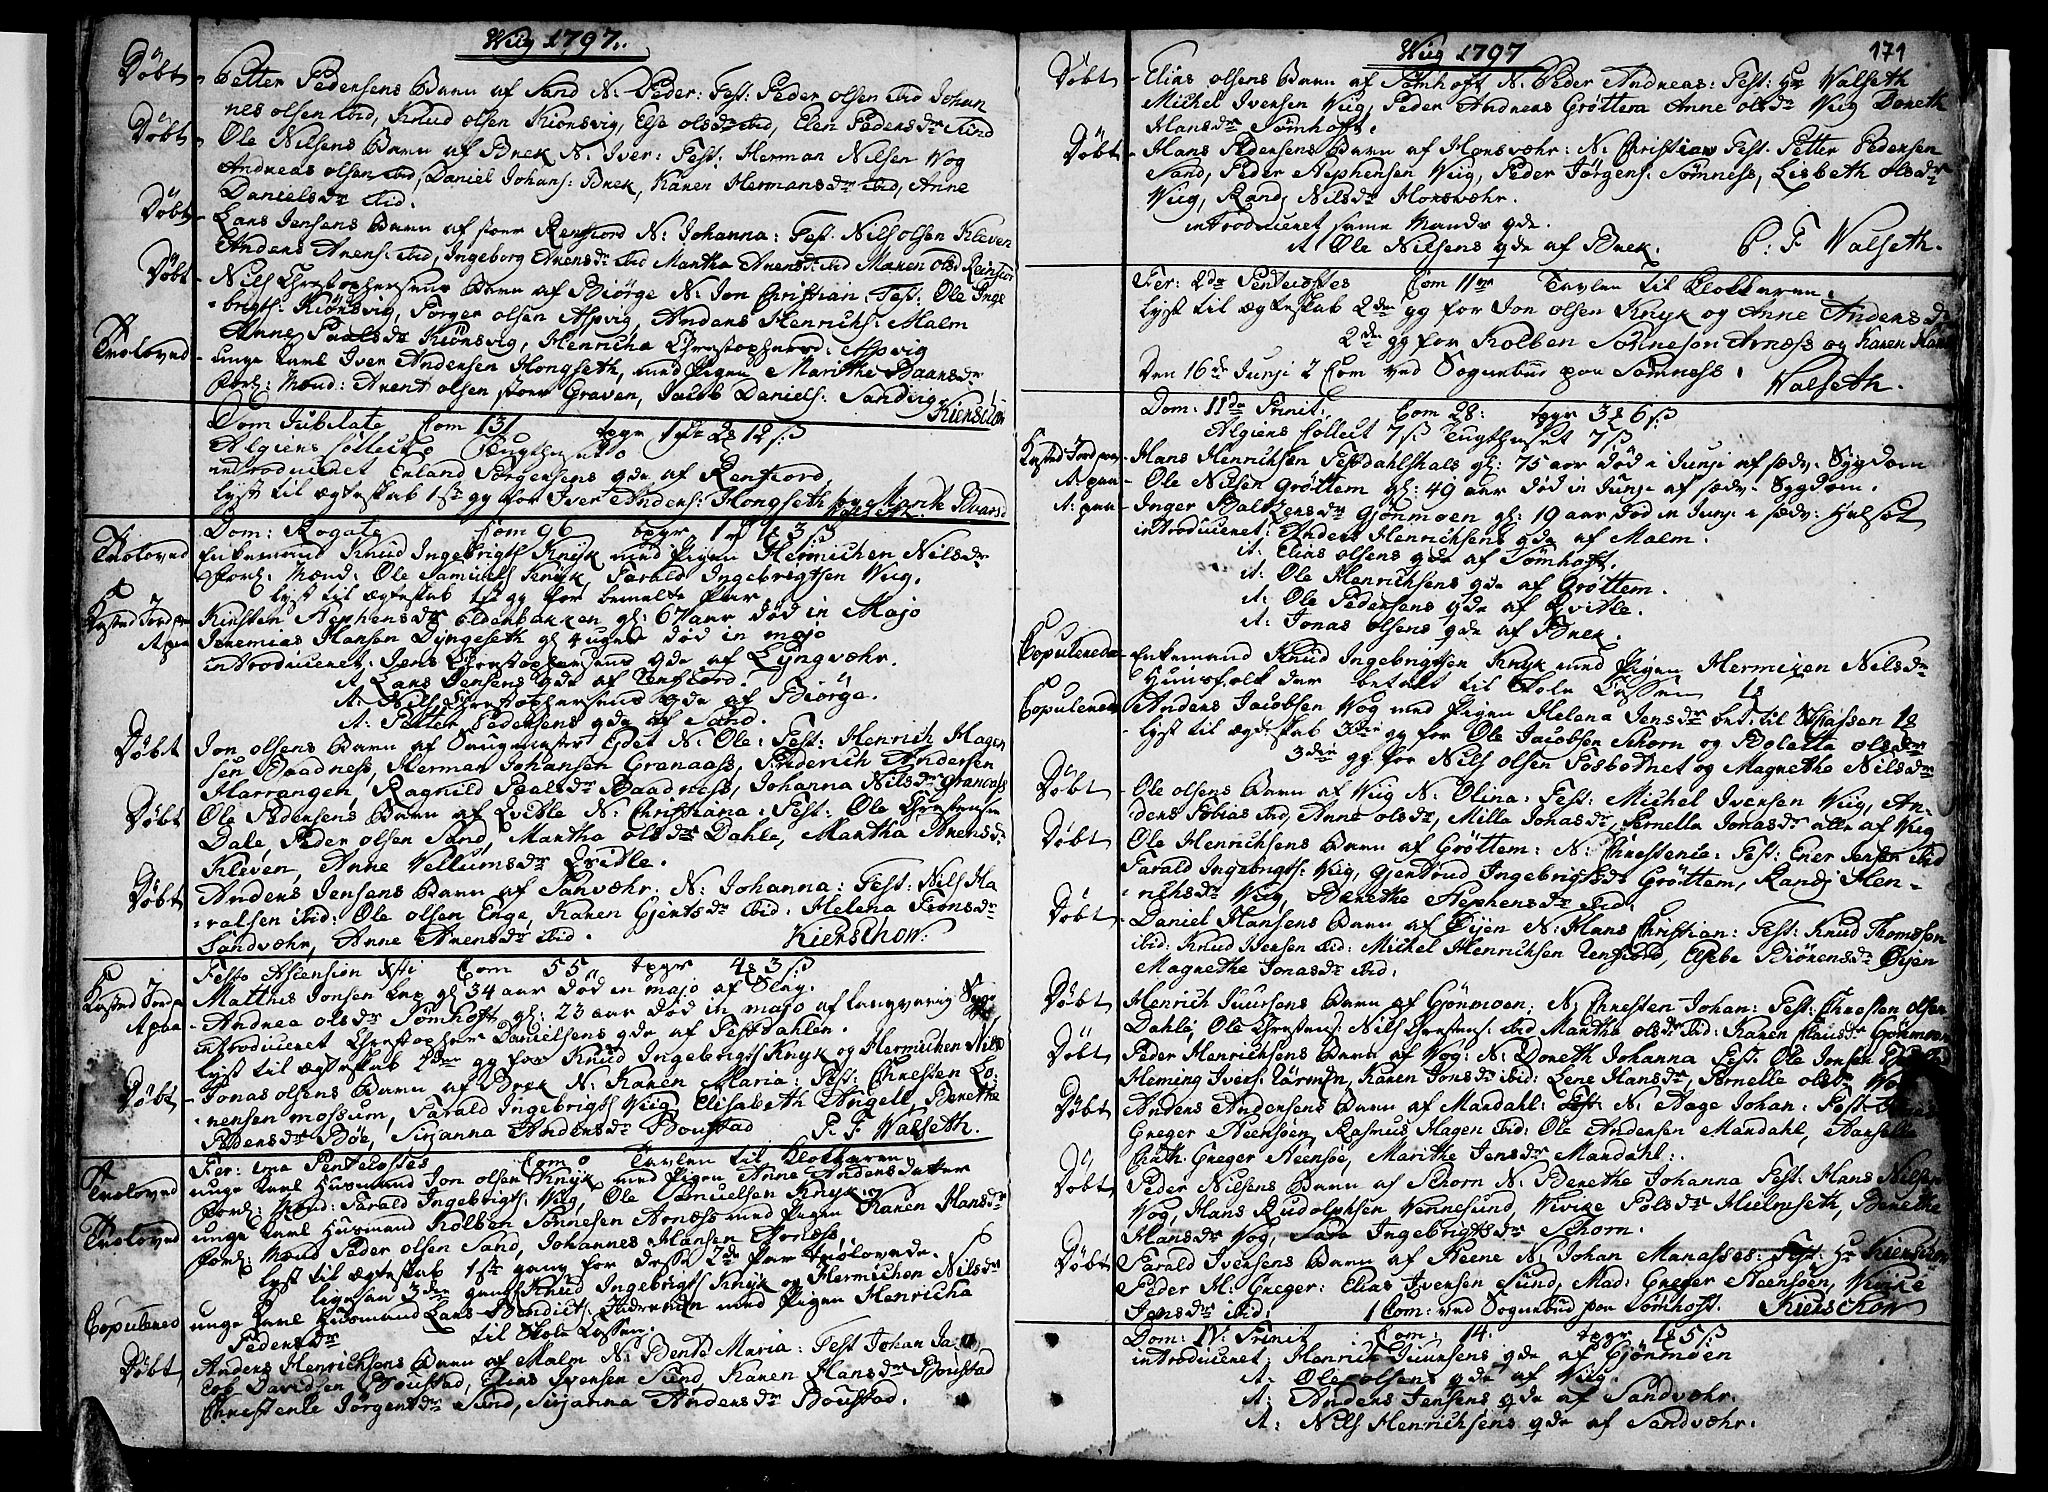 Wiig 1797.
Døbt - Petter Pedersens Barn af Sand N: Peder: Test: Peder olsen ibid Johan
nes olsen ibid, Knud olsen Kiønsvig, Else olsdr ibid, Elen Pedersdr ibid
Døbt - Ole Nilsens Barn af Brek N: Iver: Test: Herman Nilsen Wog
Andreas olsen ibid, Daniel Johans: Brek, Karen Hermansdr ibid, Anne
Danielsdr ibid.
Døbt - Lars Jensens Barn af store Renfiord N: Johanna: Test. Nils olsen Kleven
Anders Arens: ibid, Ingeborg Arensdr ibid Martha Arensdr ibid Maren olsd
Døbt - Nils Christophersens Barn af Biørge N: Jon Christian: Test: Ole Inge
brigts: Kiønsvig, Torger olsen Aspvig, Anders Henrichs: Malm
Anne Paalsdr Kiønsvig, Henricha Christophersd: Aspvig
Troloved - unge Karl Iver Andersen Hongseth, med Pigen Marithe Baarsdr
Forl: Mænd: Arent olsen store Graven, Jacob Daniels: Sandvig Kierschow
Dom Jubilate Com 131 tpgr
Algiens Collect 0 Tugthuset 0
introduceret Erland Jørgensens qde af Renfiord
lyst til ægteskab 1ste gg for Iver Anders: Hongseth og Marith Baarsd
Dom: Rogate Com 96 tpgr
Troloved Enkemand Knud Ingebrigts Knyk med Pigen Hermichen Nilsdr
Forl: Mænd: Ole Samuels Knyk, Tarald Ingebrigtsen Wiig.
lyst til ægteskab 1ste gg for bemelte Par
Kasted Jord paa Kirsten Stephensdr oldenbakken gl: 67 aar død in Majo
A paa Jeremias Hansen Dyngeseth gl 4 uger død in majo
introduceret: Jens Christophersens qde af Lyngvæhr.
it: Lars Jensens qde af Renfiord.
it: Nils Christophersens qde af Biørge.
it: Petter Pedersens qde af Sand.
Døbt Jon olsens Barn af Eydet N: Ole: Test: Henrich Hagen
sen Baadness, Herman Johansen Granaass, Friderich Andersen
Harrangen, Ragnild Paalsdr Baadness, Johanna Nilsdr Granaass
Døbt Ole Pedersens Barn af Qvitle N: Christiana: Test: Ole Christensen
Dale, Peder olsen Sand, Martha olsdr Dahle, Martha Arensdr
Kleven, Anne Vellumsdr Qvitle.
Døbt Anders Jensens Barn af Sanvæhr. N: Johanna: Test: Nils Ha
ralsen ibid: Ole olsen Enge, Karen Gjertsdr ibid: Helena Tronsdr
Sandvæhr, Anne Arensdr ibid. Kierschow.
Festo Ascension Xsti Com 55 tpgr 4 3 ß
Kasted Jord p Matthis Jonsen gl 34 aar død in majo af Slag.
A paa - Andrea olsdr Sømhoft gl: 23 aar død in majo af langvarig Syg
introduceret Christopher Danielsens qde af Tessdahlen.
lyst til ægteskab 2den gg for Knud Ingebrigts Knyk og Hermichen Nilsd
Døbt - Jonas olsens Barn af Brek N: Karen Maria: Test: Christen Lo:
rensen mossum, Tarald Ingebrigts Wiig Elisabeth Angell, Berethe
Pedersdr Bøe, Susanna Andersdr Boustad P. F. Walseth.
Fer: 1ma Pentecostes Com 0 Tavlen til Klokkeren
Trolovet unge Karl Husmand Jon olsen Knyk med Pigen Anne Andersdatter
Forl: Mænd: Tarald Ingebrigts: Wiig, Ole Samuelsen Knyk.
Trolovet unge Karl Husmand Kolben Sønnesen Arnæss med Pigen Karen Hansdr
Forl: Mænd Peder olsen Sand, Johannes Hansen Arnæss,
lyst til ægteskab 1ste gang for disse 2de Par trolovede.
ligesaa 3die gang Knud Ingebrigts Knyk og Hermichen Nilsdr
Copulered unge Karl Husmand Lars Bendicts: med Pigen Henricha
Pedersdr til Skole Cassen.
Døbt Anders Henrichsens Barn af Malm N: Bendt Maria: Test Johan Ja
cob Davidsen Boustad, Elias Iversen Sund, Karen Hansdr Boustad
Christense Jørgensdr Sund, Susanna Andersdr Boustad.
Wiig 1797
171
Døbt - Elias olsens Barn af Sømhoft N: Peder Andreas: Test: Hr Walseth
Michel Iversen Wiig, Peder Andreas Grøttem Anne olsdr Wiig Doreth
Hansdr Sømhoft.
Døbt - Hans Pedersens Barn af Horsvæhr: N: Christian Test. Petter Pedersen
Sand, Peder Stephensen Wiig, Peder Jørgens: Sømness, Lisbeth olsdr
Wiig, Randi Nilsdr Horsvæhr.
introduceret samme Mands qde.
it Ole Nilsens qde af Brek. P: F Walseth.
Fer: 2da Pentecostes Com 11ve Tavlen til Klokkeren.
lyst til ægteskab 2den gg for Jon olsen Knyk og Anne Andersdr
2den gg for Kolben Sønnesen Arnæss og Karen Hans
Den 16de Junji 2 Com ved Sognebud paa Sømness. Walseth.
Dom: IIda Trinit: Com 28: tpgr 3 6 ß
Algiens Collect 7 ß Tugthuset 7 ß
Kasted Jord paa - Hans Henrichsen Tessdahlshals gl: 75 aar død i Junji af sædv. Sygdom
A paa - Ole Nilsen Grøttem gl: 49 aar død in Junji af sædv. Sygdom.
A: paa - Inger Baltzersdr Gjønmoen gl: 19 aar død in Junji i sædv: Helsot
introduceret: Anders Henrichsens qde af Malm.
it: Elias olsens qde af Sømhoft.
it: Ole Henrichsens qde af Grøttem.
it: Ole Pedersens qde af Qvitle.
it: Jonas olsens qde af Brek.
Copulerede - Enkemand Knud Ingebrigtsen Knyk med Pigen Hermiken Nilsdr
Huusfolk der betalt til Skole Cassen
Copulered Anders Jacobsen Wog med Pigen Helena Jensdr bet: til
lyst til ægteskab 3die gg for Ole Jacobsen Schorn og Boletta olsdr
3die gg for Nils olsen Fosbotnet og Magrethe Nilsdr
Døbt - Ole olsens Barn af Wiig N: Olina: Test: Michel Iversen Wiig, An-
ders Tobias ibid, Anne olsdr, Milla Jonasdr, Pernella Jonasdr alle af Wiig
Døbt Ole Henrichsens Barn af Grøttem: N: Christense: Test: Ener Jensen ibid
Tarald Ingebrigts: Wiig, Giertrud Ingebrigtsdr Grøttem, Randi Hen-
richsdr Wiig, Berethe Stephensdr ibid:
Døbt - Daniel Hansens Barn af Øyen N: Hans Christian: Test: Knud Thomsen
ibid: Knud Iversen ibid: Michel Henrichsen Renfiord, Elsebe Biørensdr Øyen
Magrethe Jonasdr ibid:
Døbt Henrich Juursens Barn af Gjønmoen: N: Christen Johan: Test: Christen olsen
Dahle, Ole Christens: Nils Christens: ibid Martha olsdr ibid: Karen Clausdr Gjønmoen
Døbt Peder Henrichsens Barn af Wog: N: Doreth Johanna Test: Ole Jonsen
Heming Ivers: Karen Jonsdr ibid: Lene Hansdr, Pernelle olsdr Wog
Døbt Anders Andersens Barn af Mardahl: N: Aage Johan: Test:
Greger Steensøen, Rasmus Hagen ibid: Ole Andersen Mardahl,
Cath: Greger Steensøe, Marithe Jensdr Mardahl:.
Døbt - Peder Nilsens Barn af Schorn N: Berethe Johanna Test: Hans Nilsen
Wog, Hans Rudolphsen Vennesund, Wivike Polsdr Hielmseth, Berethe
Hansdr Wog, Sara Ingebrigtsdr Schorn.
Døbt - Tarald Iversens Barn af Steene N: Johan Manasses: Test: Hr Kierschow
Peder M: Greger: Elias Iversen Sund, Mad: Greger Steensøen, Wivike
Jonsdr ibid: 1 Com: ved Sognebud paa Sømhoft. Kierschow
Dom: IV: Trinit Com: 14. tpgr 1 5 ß
introduceret: Henrich Juursens qde af Gjønmoen
it: Ole olsens qde af Wiig.
it: Anders Jensens qde af Sandvæhr.
it: Nils Henrichsens qde af Sandvæhr.